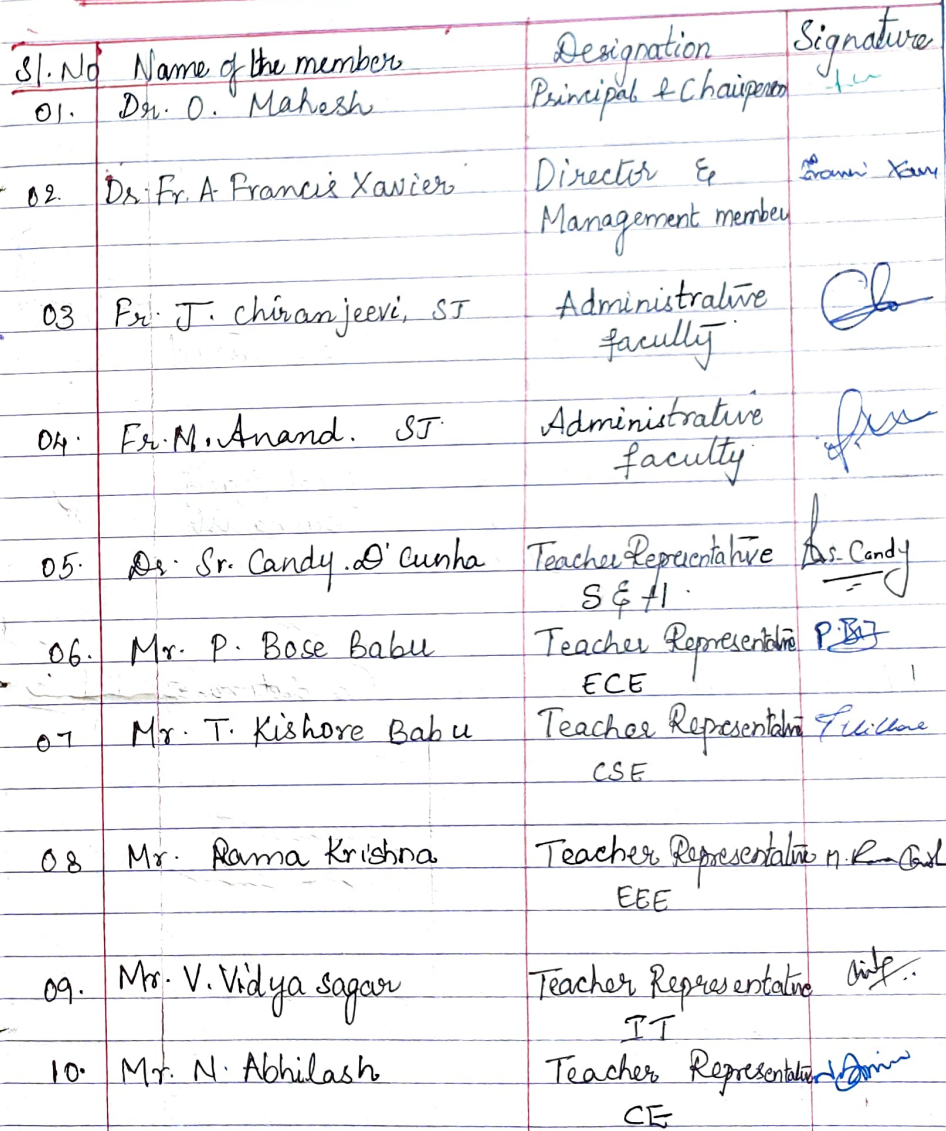 Sl. No Name of the member Designation Signature
01. Dr. O. Mahesh Principal & Chairperson
02. Dr. Fr. A Francis Xavier Director &
Management member
03 Fr. J. chiranjeevi, SJ Administrative
faculty
04. Fr. M. Anand. SJ Administrative
faculty
05. Dr. Sr. Candy. D'Cunha Teacher Representative Ds. Candy
S & H.
06. Mr. P. Bose Babu Teacher Representative
ECE
07 Mr. T. Kishore Babu Teacher Representative
CSE
08 Mr. Rama Krishna Teacher Representative
EEE
09. Mr. V. Vidya sagar Teacher Representative
IT
10. Mr. N. Abhilash Teacher Representative
CE